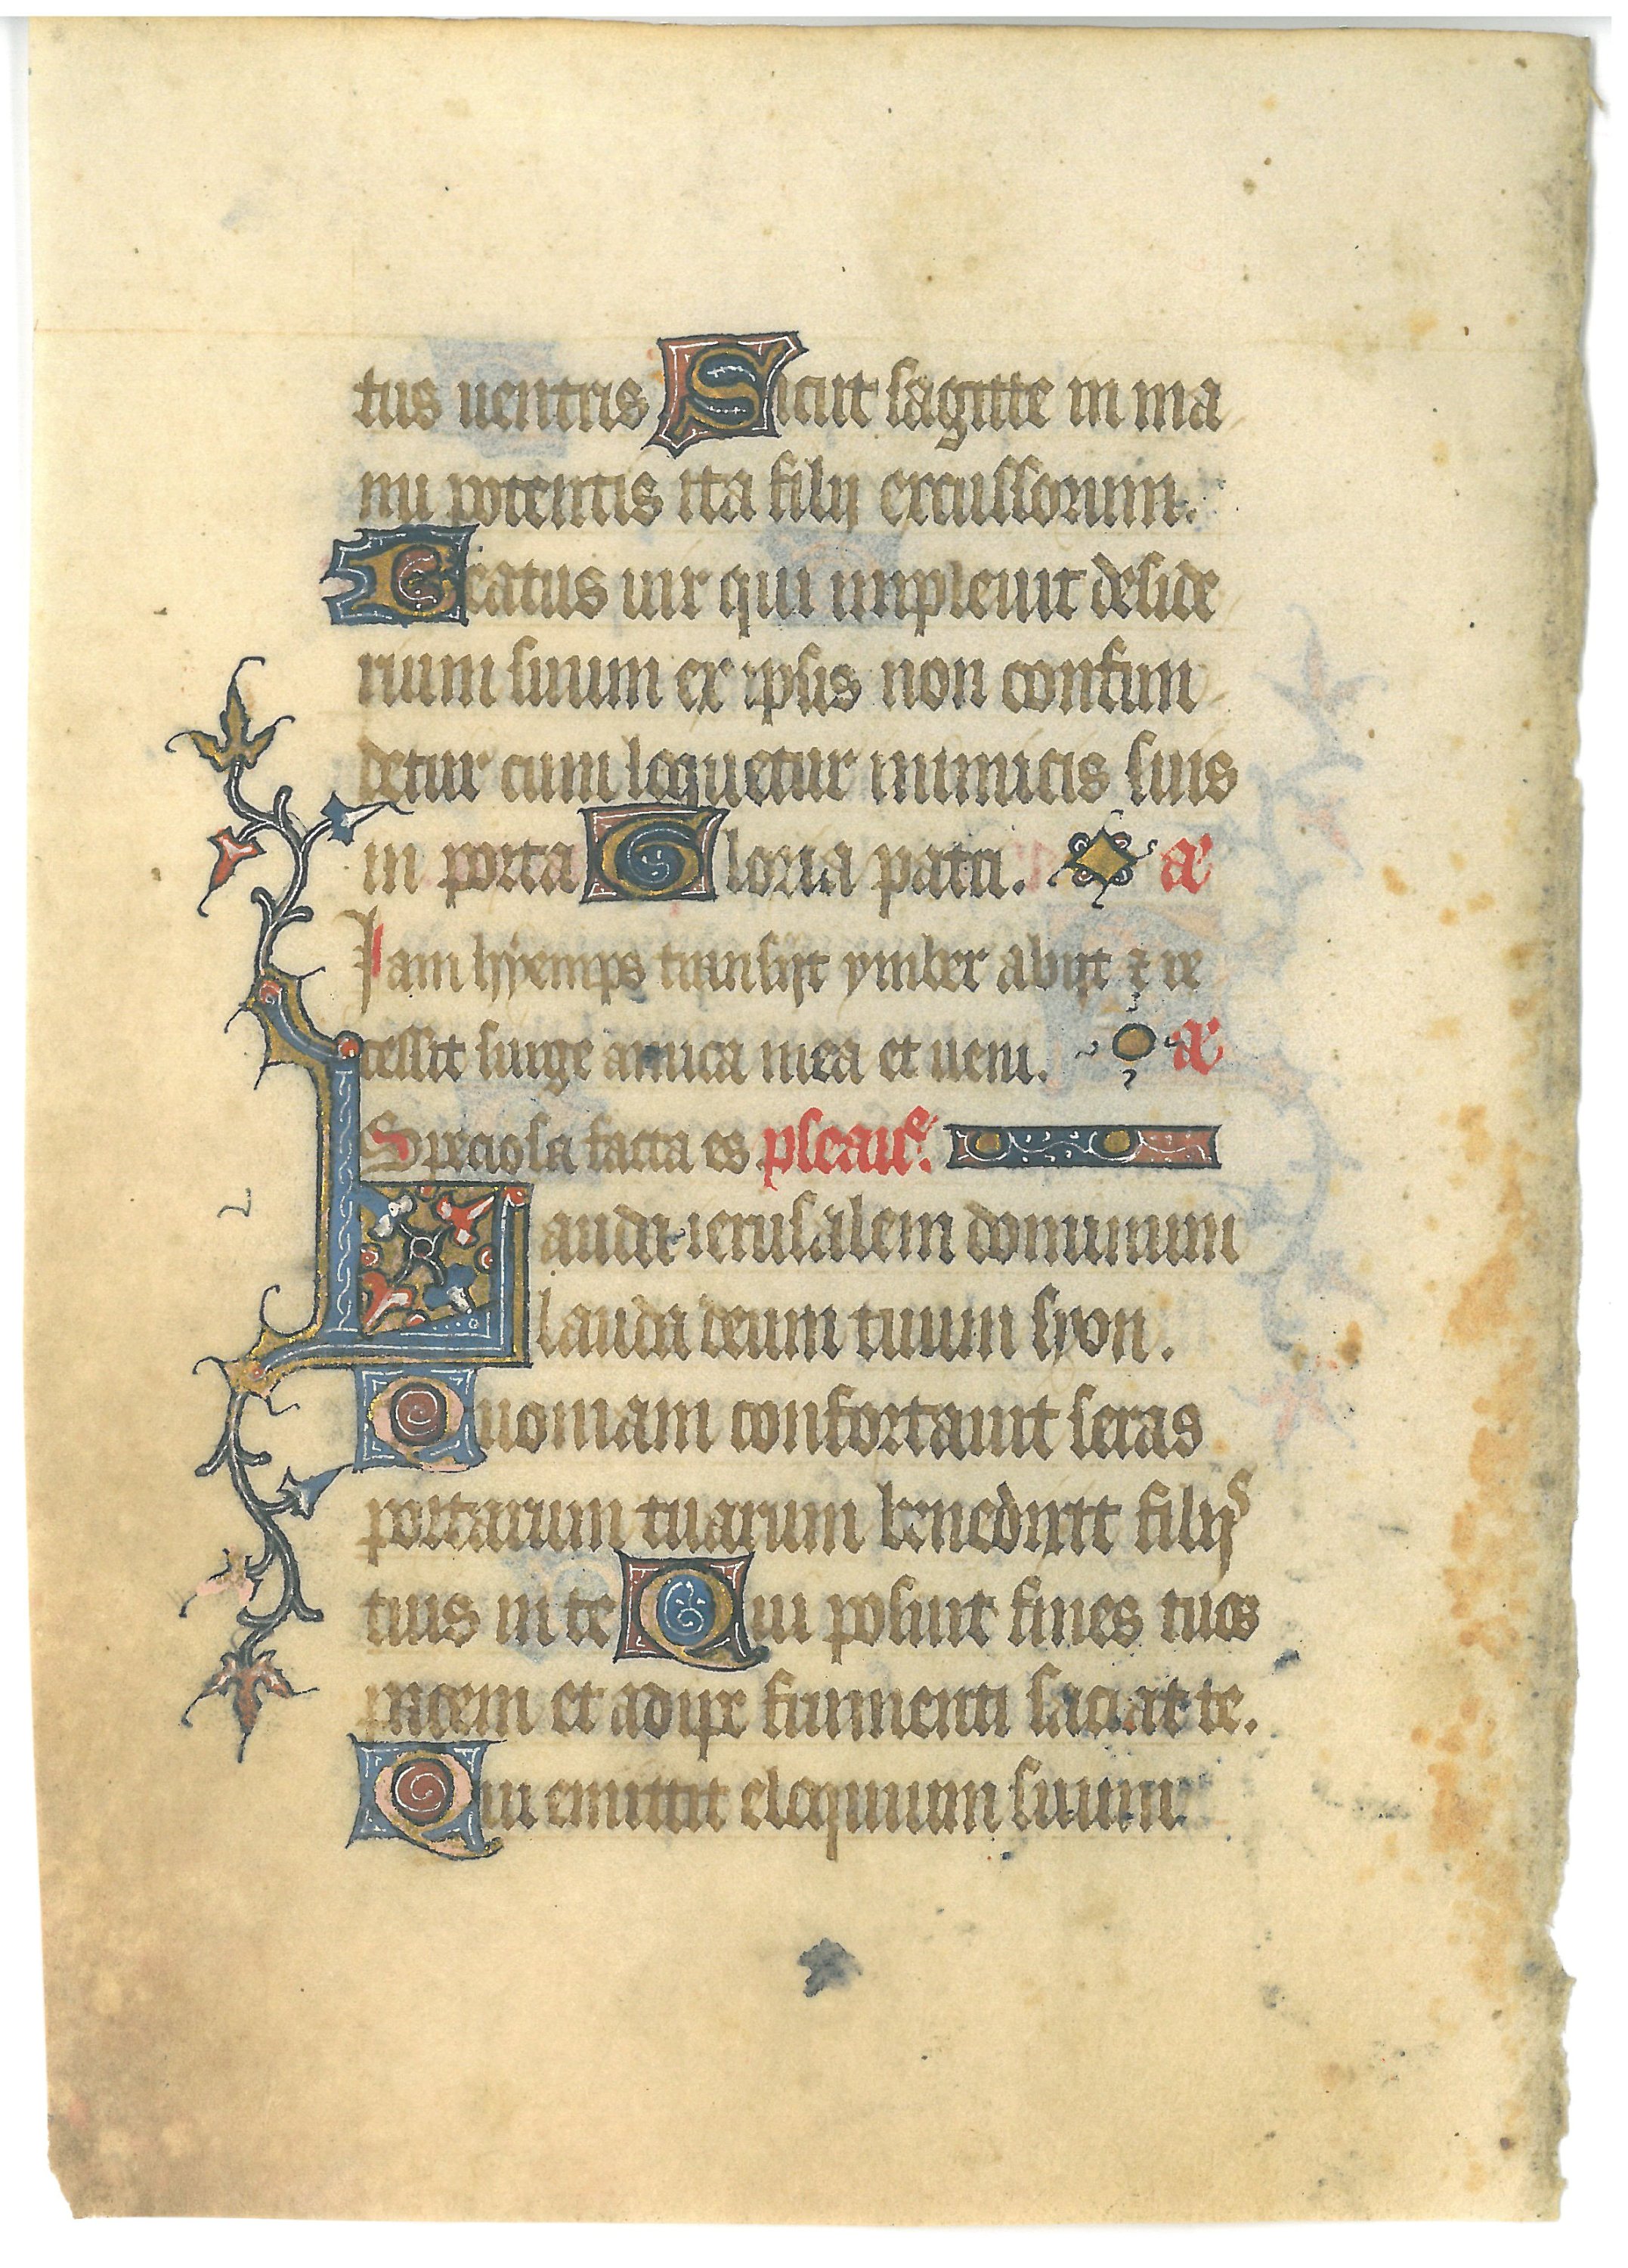 tus uentris Sicut sagitte in ma
nu potentis ita filij excussorum.
Beatus uir qui impleuit deside
rium suum ex ipsis non confun
detur cum loquetur inimicis suis
in porta Gloria patri. añ
Iam hyemps transijt ymber abijt ⁊ re
cessit surge amica mea et ueni. añ
Speciosa facta es
Lauda ierusalem dominum
lauda deum tuum syon.
Quoniam confortauit seras
portarum tuarum benedixit filijs
tuis in te Qui posuit fines tuos
pacem et adipe frumenti saciat te.
Qui emittit eloquium suum